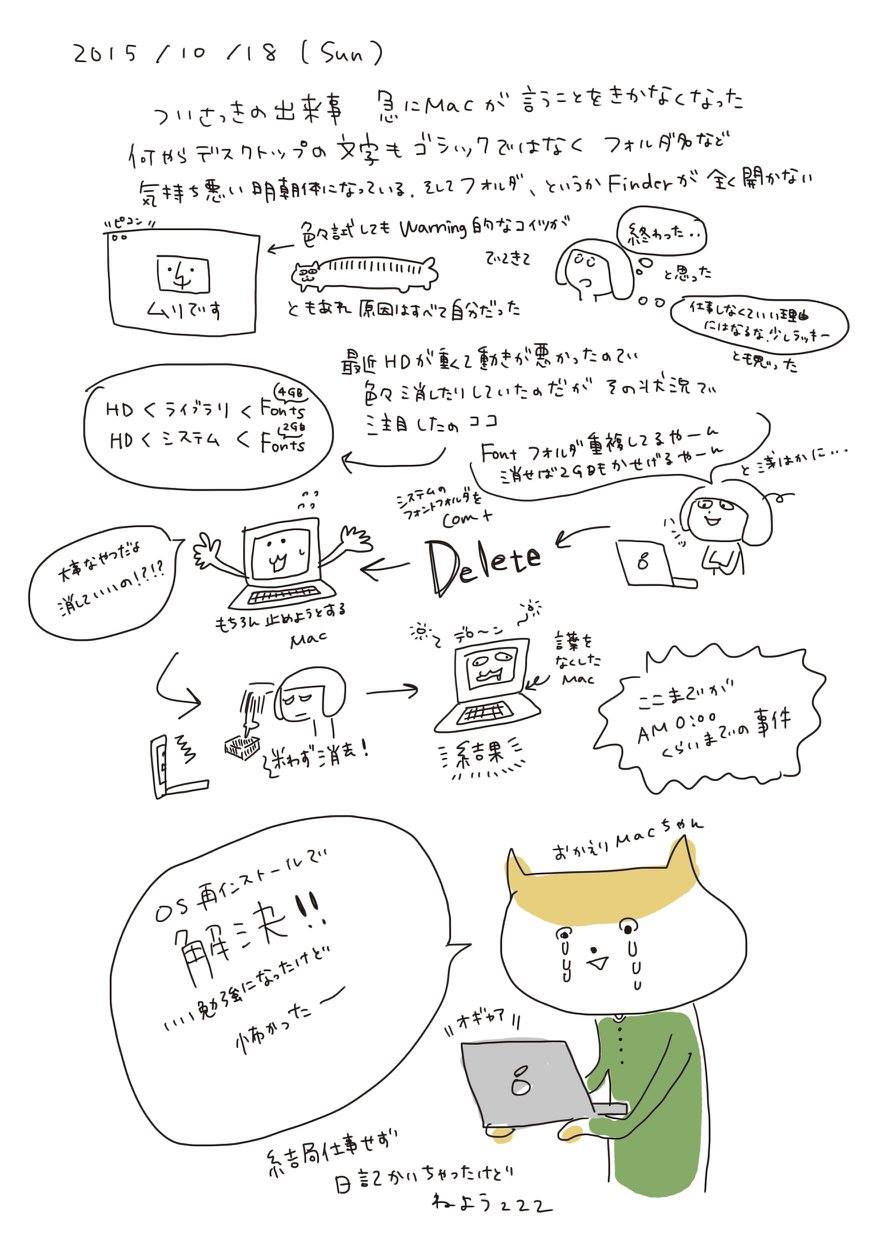 2015/10/18 (Sun)
ついさっきの出来事 急にMacが言うことをきかなくなった
何やらデスクトップの文字もゴシックではなく フォルダ名など
気持ち悪い明朝体になっている。そしてフォルダ、というかFinderが全く開かない
"ピコン"
ムリです
色々試しても Warning的なコイツが
でてきて
ともあれ 原因はすべて自分だった
終わった・・
と思った
仕事しなくていい理由
にはなるな、少しラッキー
とも思った
最近HDが重くて動きが悪かったので
色々消したりしていたのだが その状況で
注目したのココ
HD < ライブラリ < Fonts
4GB
HD < システム < Fonts
2GB
Font フォルダ重複してるやーん
消せば2GBもかせげるやーん
と浅はかに・・・
システムの
フォントフォルダを
Com+
Delete
大事なやつだよ
消していいの!?!?
もちろん止めようとする
Mac
迷わず消去!
デローン
言葉を
なくした
Mac
結果
ここまでが
AM0:00
くらいまでの事件
OS再インストールで
解決!!
いい勉強になったけど
怖かったー
おかえりMacちゃん
"オギャア"
結局仕事せず
日記かいちゃったけど
ねようzzz